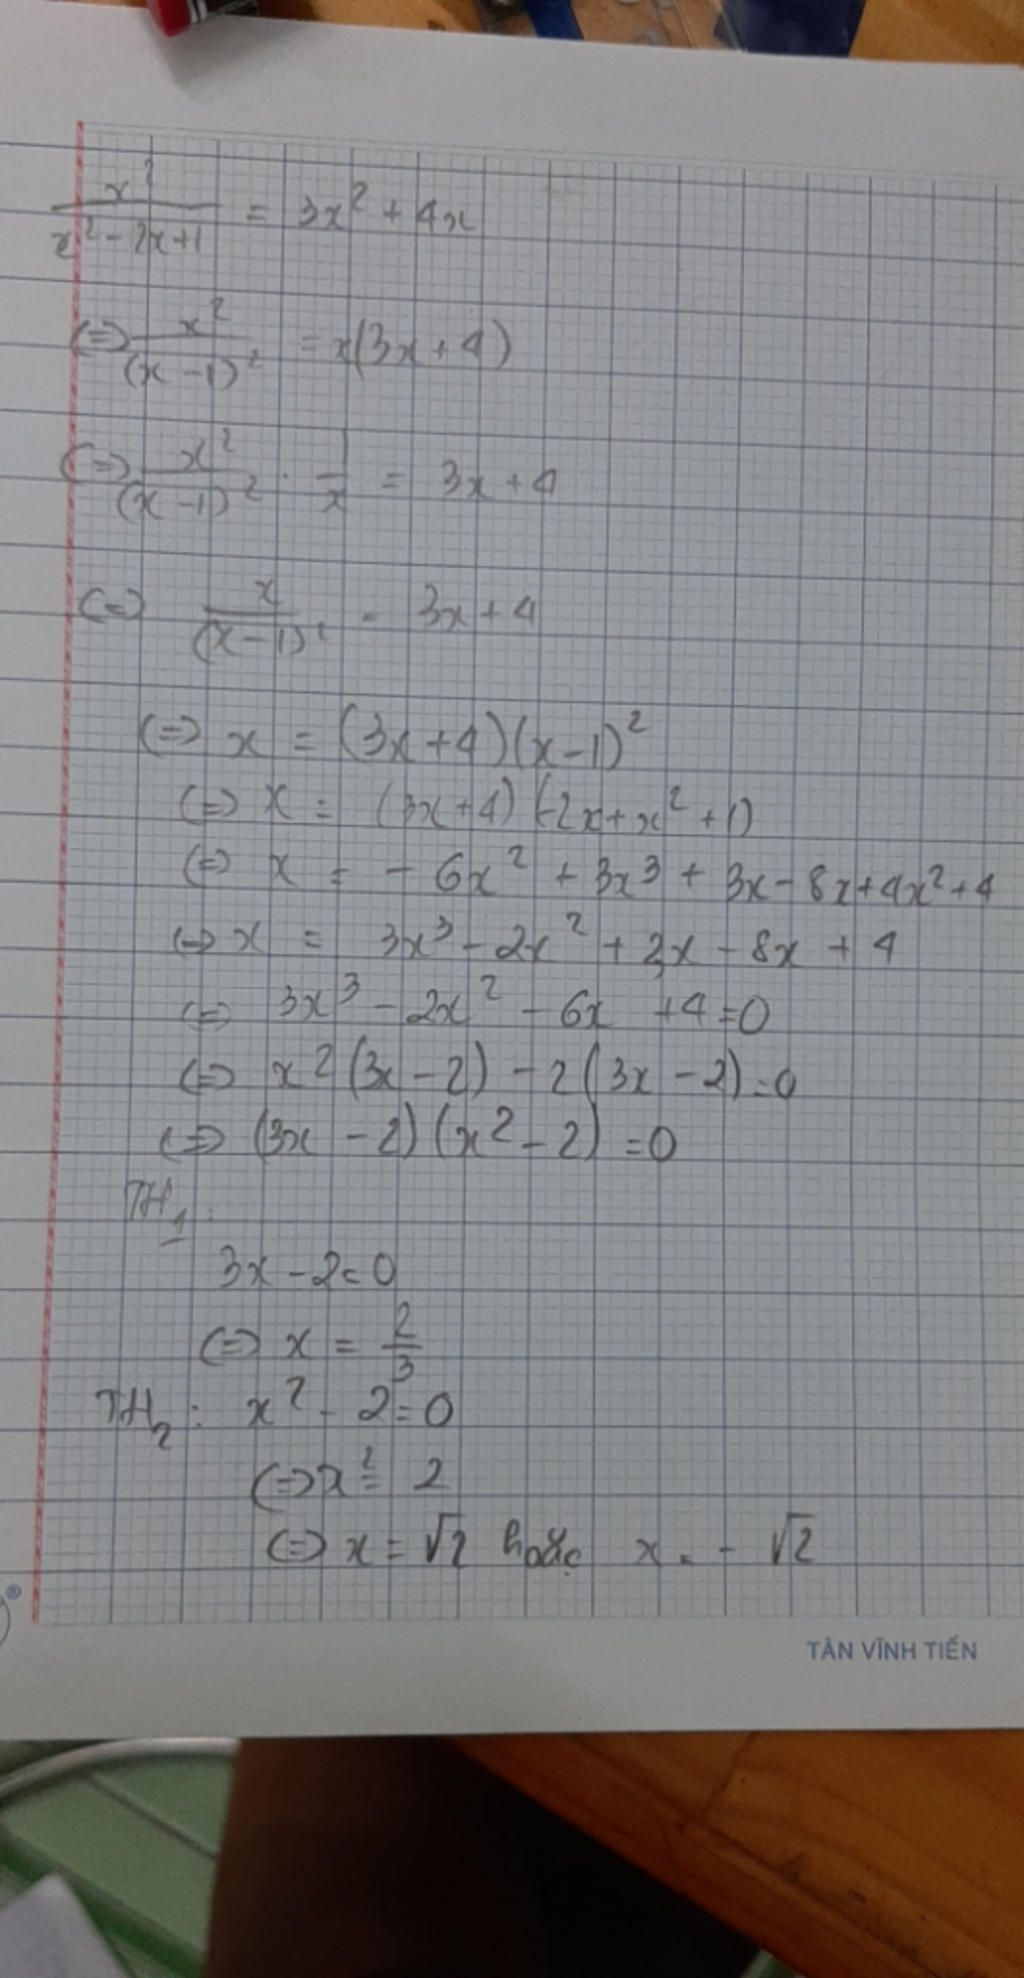 x²/(x² - 2x + 1) = 3x² + 4x
(=) x²/(x - 1)² = x(3x + 4)
(=) x²/(x - 1)² · 1/x = 3x + 4
(=) x/(x - 1)² = 3x + 4
(=) x = (3x + 4)(x - 1)²
(=) x = (3x + 4)(-2x + x² + 1)
(=) x = - 6x² + 3x³ + 3x - 8x + 4x² + 4
(=) x = 3x³ - 2x² + 2x - 8x + 4
(=) 3x³ - 2x² - 6x + 4 = 0
(=) x²(3x - 2) - 2(3x - 2) = 0
(=) (3x - 2)(x² - 2) = 0
TH₁:
3x - 2 = 0
(=) x = 2/3
TH₂: x² - 2 = 0
(=) x² = 2
(=) x = √2 hoặc x = - √2
TÂN VĨNH TIẾN